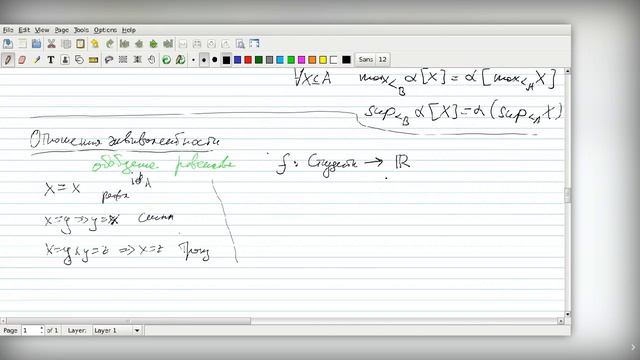 File Edit View Page Tools Options Help
Sans 12
∀X⊆A max<_B α[X] = α[max<_A X]
sup<_B α[X] = α(sup<_A X)
Отношения эквивалентности
обобщение равенства
f: Студенты → ℝ
id_A
x = x рефл
x = y ⇒ y = x симм
x = y ∧ y = z ⇒ x = z транз
Page 1 of 1 Layer: Layer 1